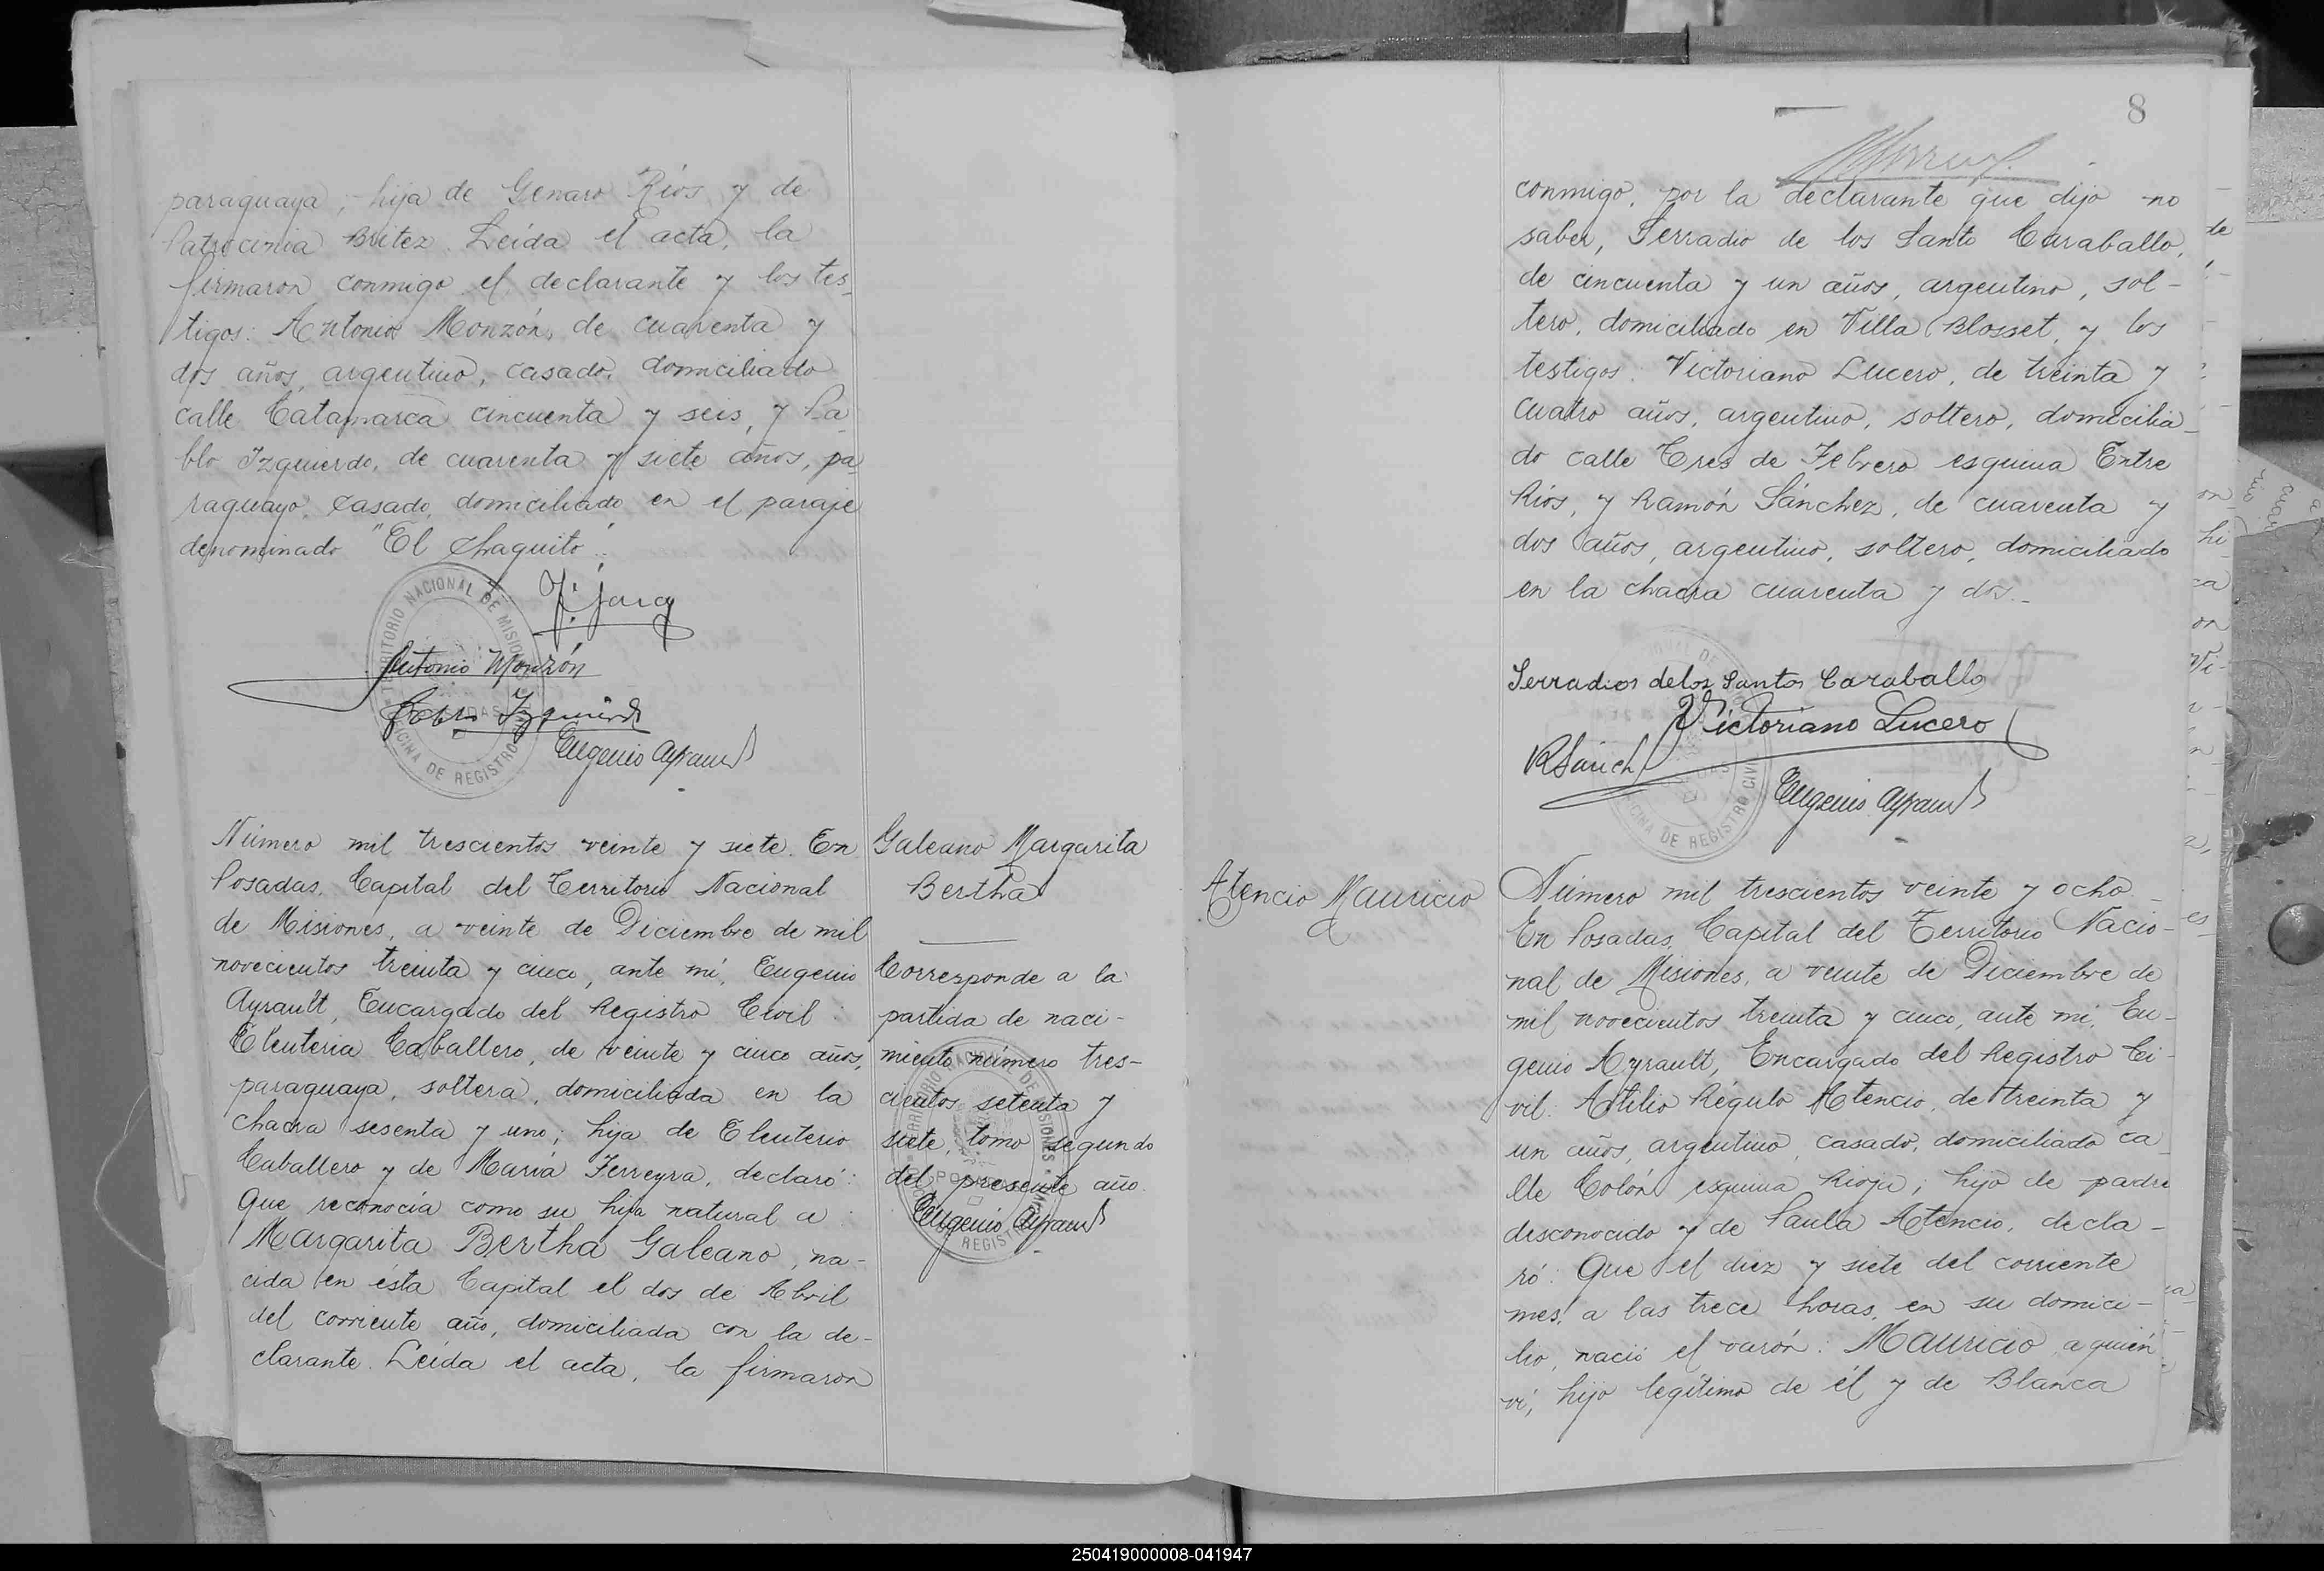 paraguaya; hija de Genaro Ríos y de
Patrocinia Britez. Leída el acta, la
firmaron conmigo el declarante y los tes-
tigos: Antonio Monzón, de cuarenta y
dos años, argentino, casado, domiciliado
calle Catamarca cincuenta y seis, y Pa-
blo Izquierdo, de cuarenta y siete años, pa
raguayo, casado, domiciliado en el paraje
denominado "El Chaquito".
TERRITORIO NACIONAL DE MISIONES
OFICINA DE REGISTRO CIVIL
POSADAS
Antonio Monzón
Pablo Izquierdo
Eugenio Ayrault
Número mil trescientos veinte y siete. En
Posadas, Capital del Territorio Nacional
de Misiones, a veinte de Diciembre de mil
novecientos treinta y cinco, ante mí, Eugenio
Ayrault, Encargado del Registro Civil:
Eleuteria Caballero, de veinte y cinco años,
paraguaya, soltera, domiciliada en la
chacra sesenta y uno; hija de Eleuterio
Caballero y de María Ferreyra, declaró:
Que reconocía como su hija natural a:
Margarita Bertha Galeano, na-
cida en ésta Capital el dos de Abril
del corriente año, domiciliada con la de-
clarante. Leída el acta, la firmaron
Galeano Margarita
Bertha
Corresponde a la
partida de naci-
miento número tres-
cientos setenta y
siete, tomo segundo
del presente año.
Eugenio Ayrault
8
conmigo, por la declarante que dijo no
saber, Serradio de los Santo Caraballo,
de cincuenta y un años, argentino, sol-
tero, domiciliado en Villa Blosset, y los
testigos: Victoriano Lucero, de treinta y
cuatro años, argentino, soltero, domicilia-
do calle Tres de Febrero esquina Entre
Ríos, y Ramón Sánchez, de cuarenta y
dos años, argentino, soltero, domiciliado
en la chacra cuarenta y dos.-
Serradios de los Santos Caraballo
Victoriano Lucero
RSánch
Eugenio Ayrault
Atencio Mauricio
Número mil trescientos veinte y ocho -
En Posadas, Capital del Territorio Nacio-
nal de Misiones, a veinte de Diciembre de
mil novecientos treinta y cinco, ante mí, Eu-
genio Ayrault, Encargado del Registro Ci-
vil: Atilio Régulo Atencio, de treinta y
un años, argentino, casado, domiciliado ca
lle Colón esquina Rioja; hijo de padre
desconocido y de Paula Atencio, decla-
ró: Que el diez y siete del corriente
mes, a las trece horas, en su domici-
lio, nació el varón: Mauricio, a quién
ví, hijo legítimo de él y de Blanca
250419000008-041947